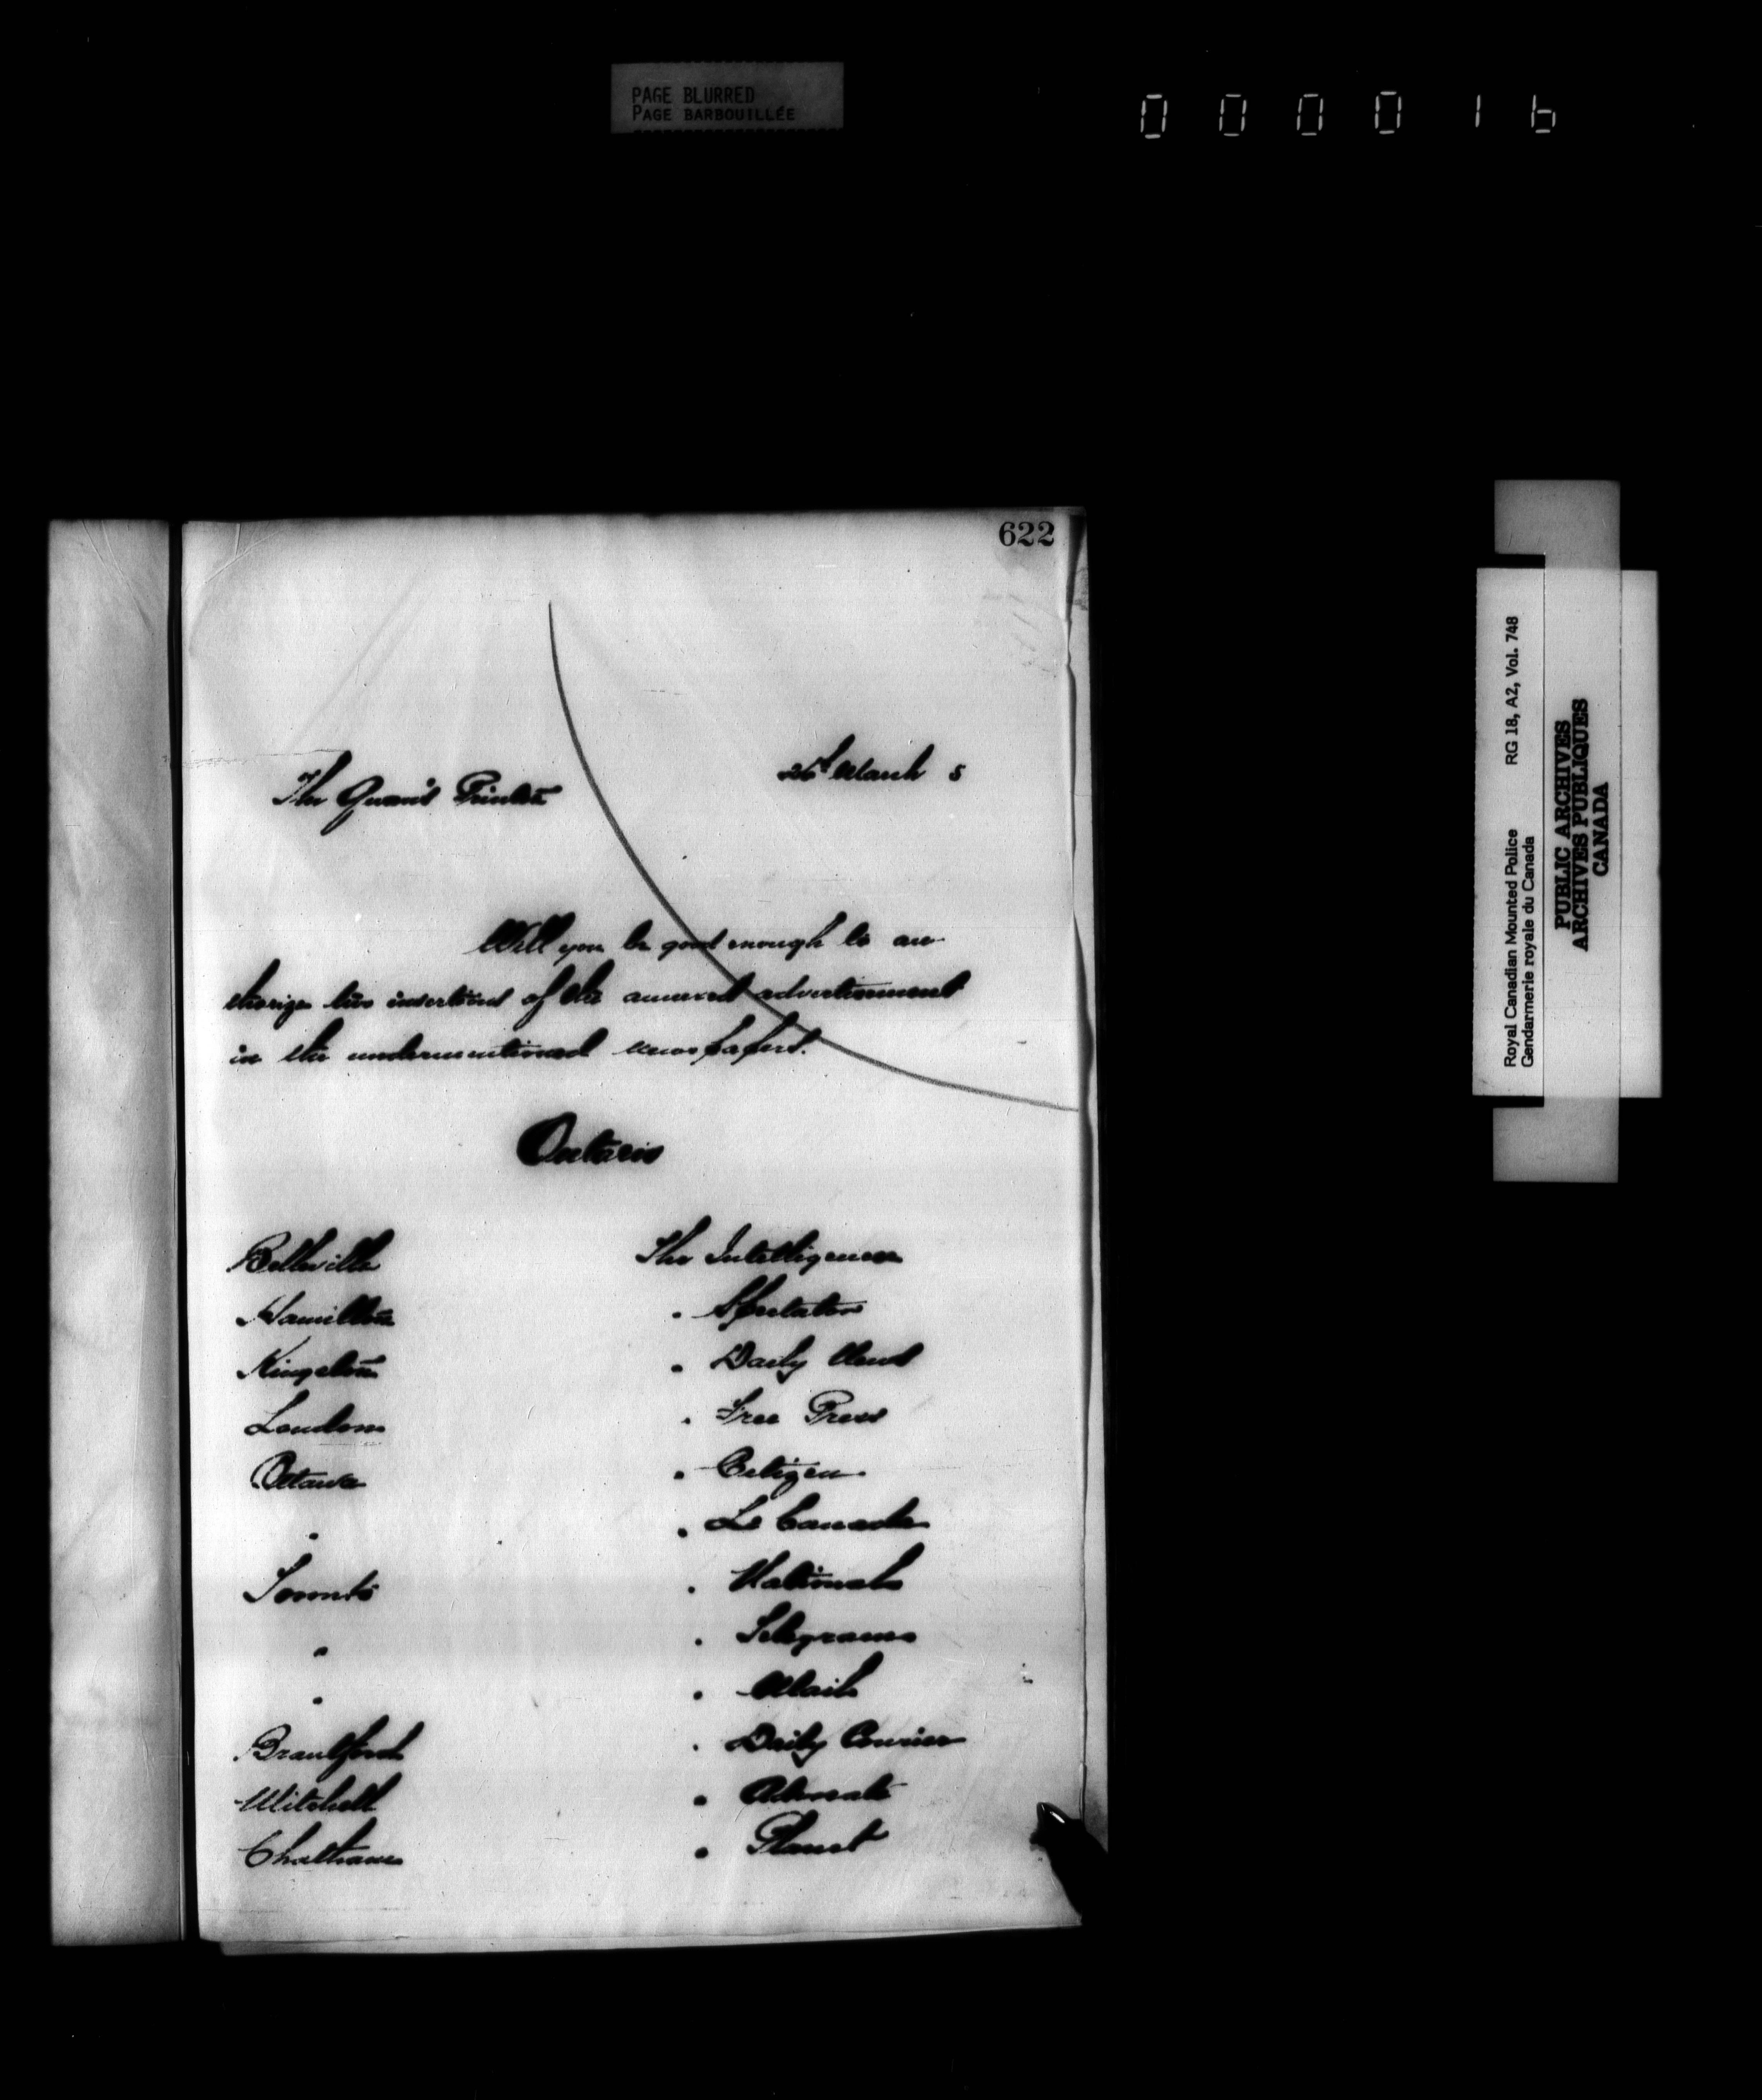 PAGE BLURRED
PAGE BARBOUILLÉE
000016
622
26th March 5
The Queen's Printer
Will you be good enough to au-
thorize two insertions of the annexed advertisement
in the undermentioned newspapers.
Ontario
Belleville The Intelligencer
Hamilton " Spectator
Kingston " Daily News
London " Free Press
Ottawa " Citizen
" " Le Canada
Toronto " National
" " Telegram
" " Mail
Brantford " Daily Courier
Mitchell " Advocate
Chatham " Planet
Royal Canadian Mounted Police RG 18, A2, Vol. 748
Gendarmerie royale du Canada
PUBLIC ARCHIVES
ARCHIVES PUBLIQUES
CANADA